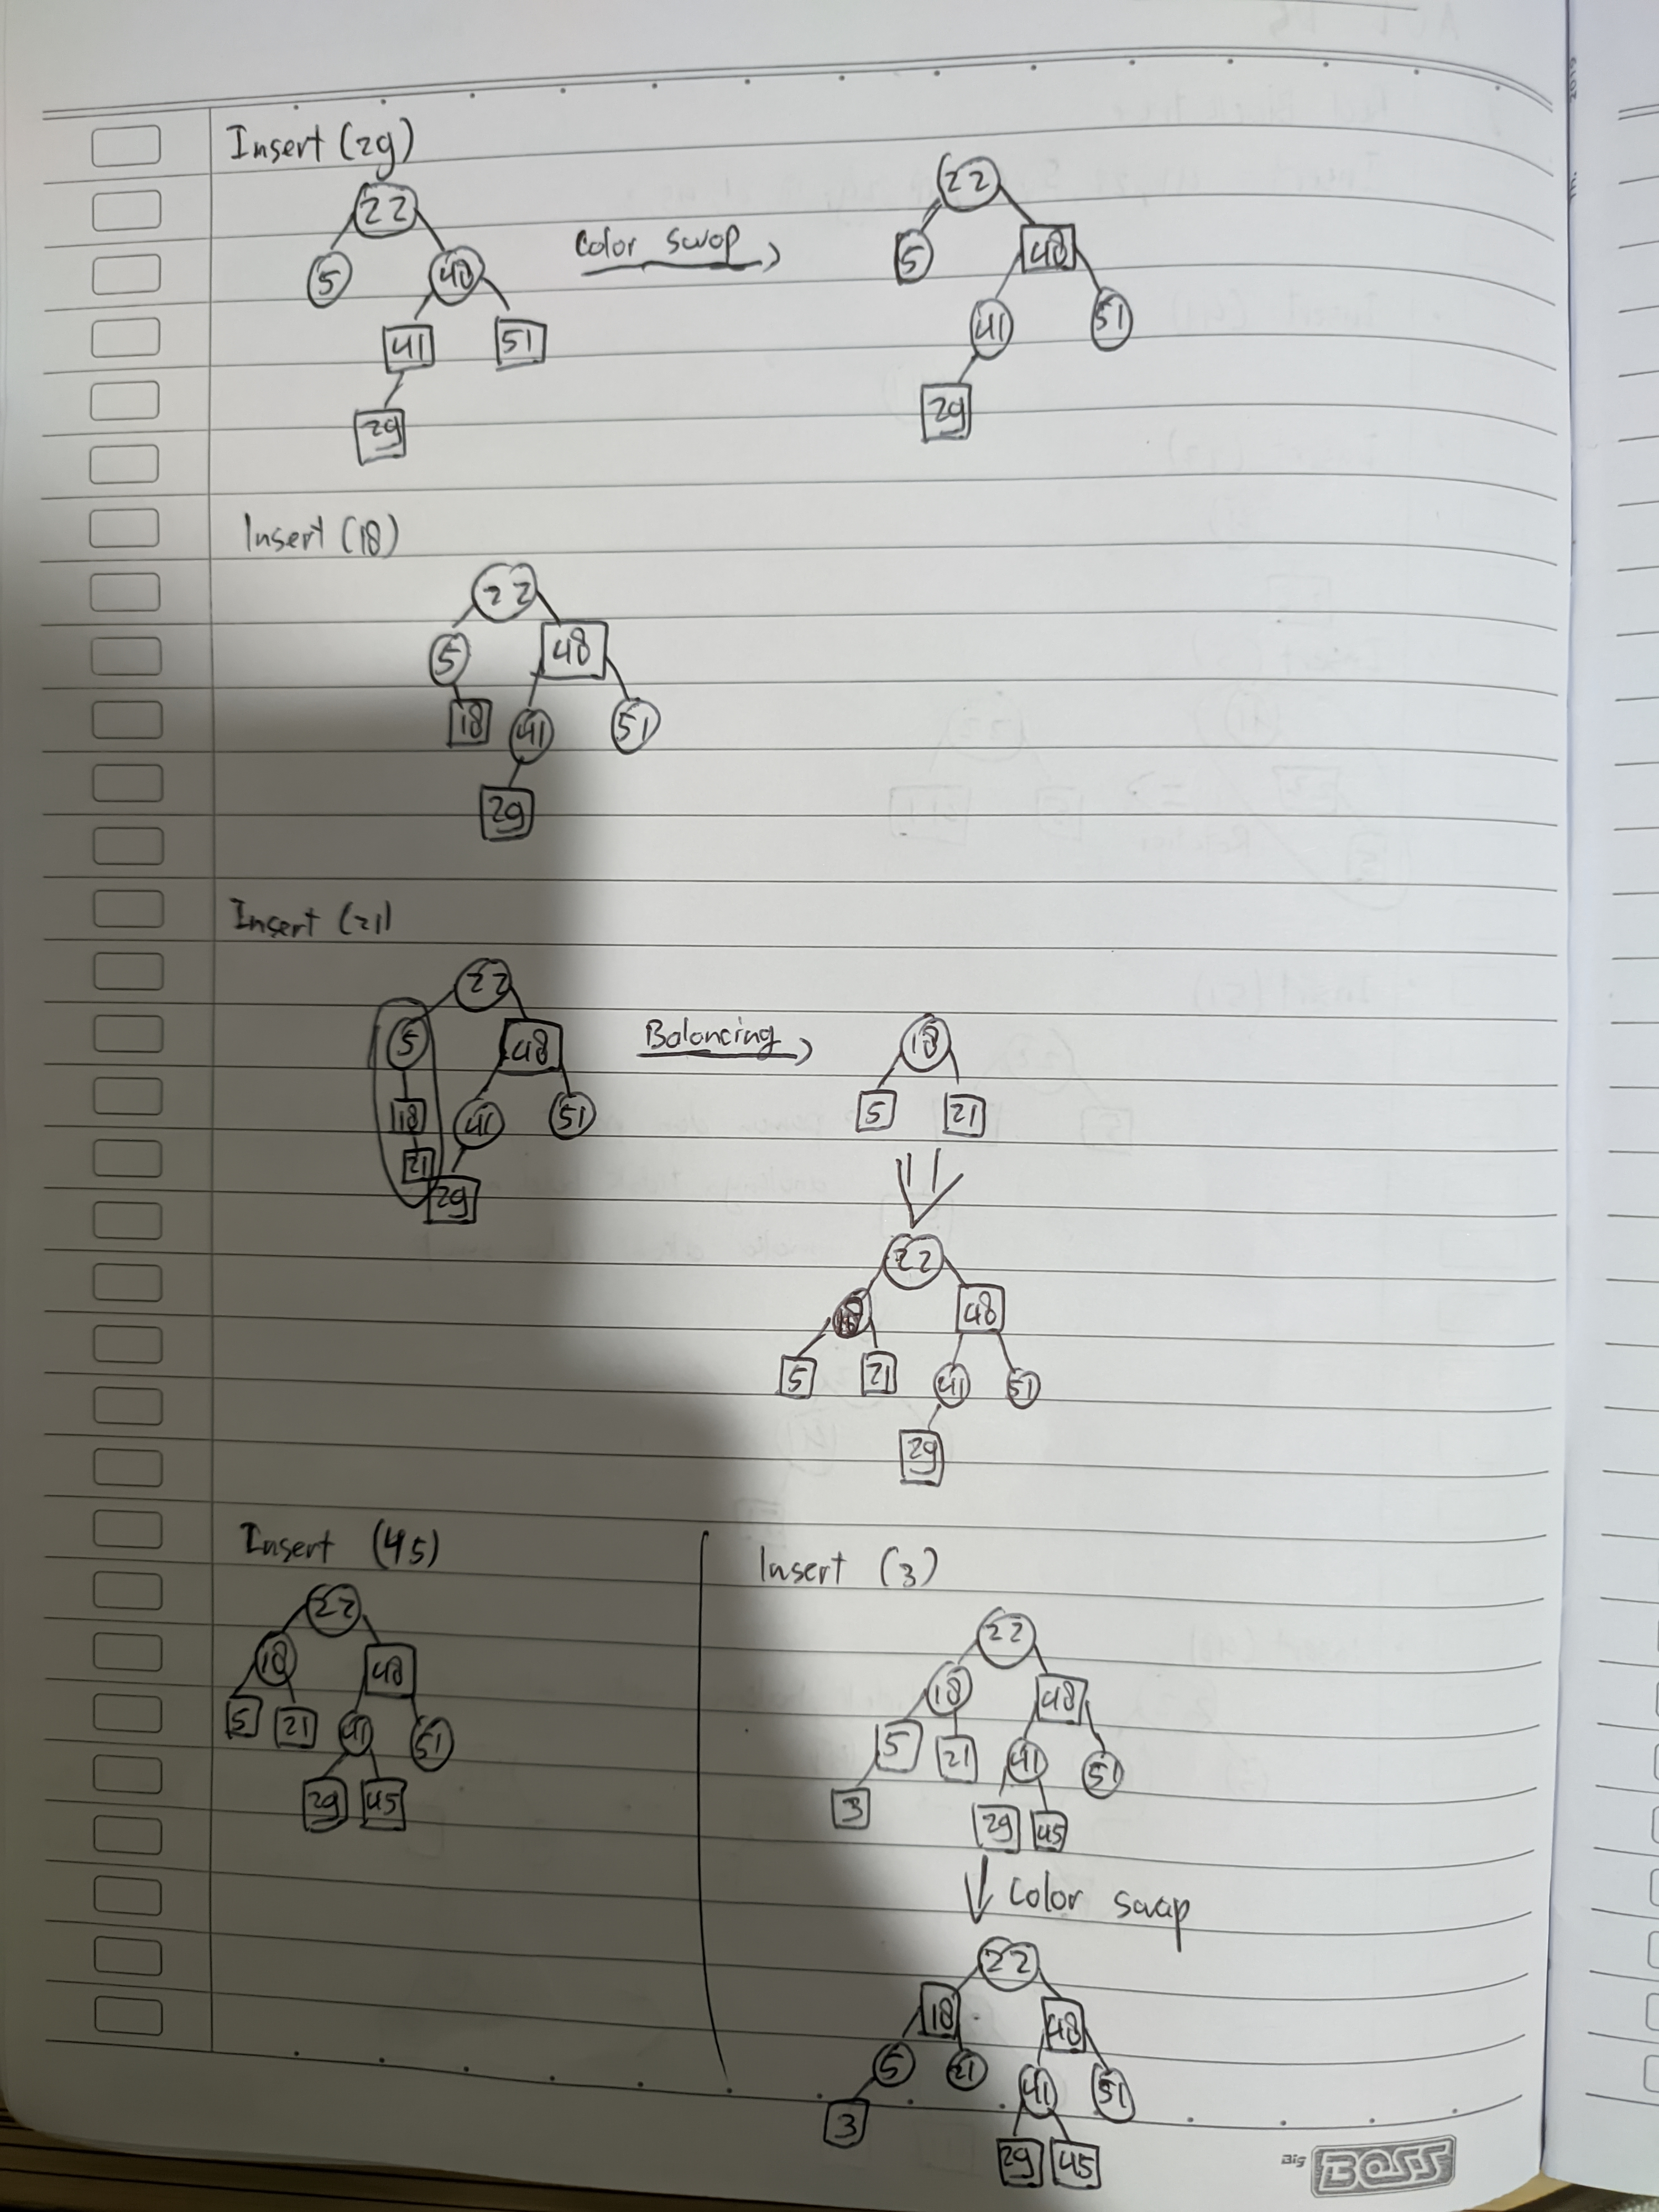 Insert (29)
22
5 48
41 51
29
Color swap
22
5 48
41 51
29
Insert (18)
22
5 48
18 41 51
29
Insert (21)
22
5 48
18 41 51
21
29
Balancing
18
5 21
22
18 48
5 21 41 51
29
Insert (45)
22
18 48
5 21 41 51
29 45
Insert (3)
22
18 48
5 21 41 51
3 29 45
Color swap
22
18 48
5 21 41 51
3 29 45
Big BOSS